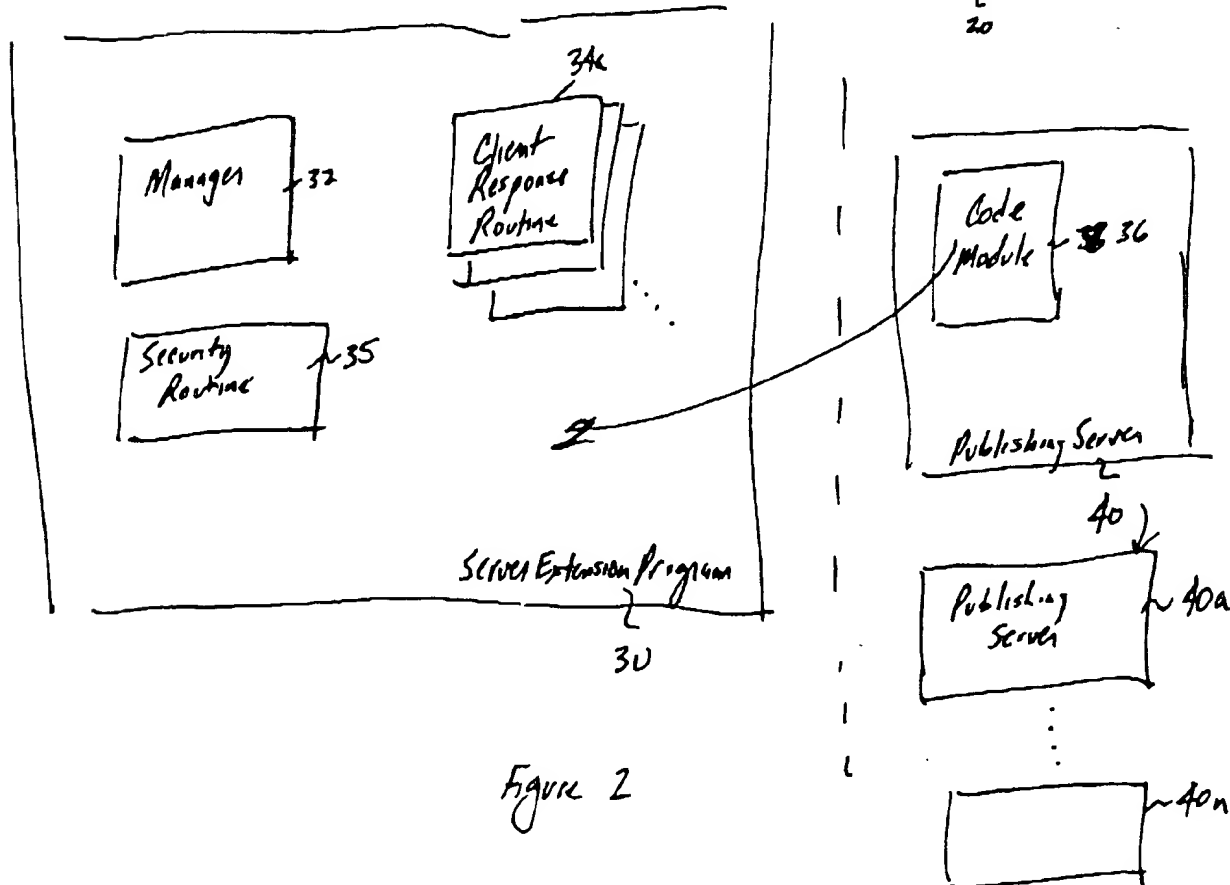 20
34a
Manager
32
Client
Response
Routine
Code
Module
36
Security
Routine
35
Publishing Server
40
Server Extension Program
30
Publishing
Server
40a
Figure 2
40n